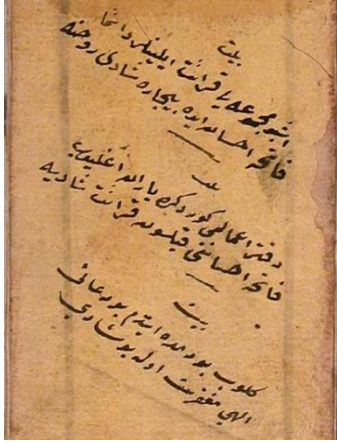 بيت
اشبو مجموعه يى قرائت ايلينلر دائما
فاتحه احسان ايده بيچاره شادى روحنه
بيت
دفتر اعمالمى كوردكده ياران اغليوب
فاتحه احساننى قيلسون قرائت شاديه
بيت
كلوب بو دمده ايتدم بو دعائى
الهي مغفرت اوله بو شادي